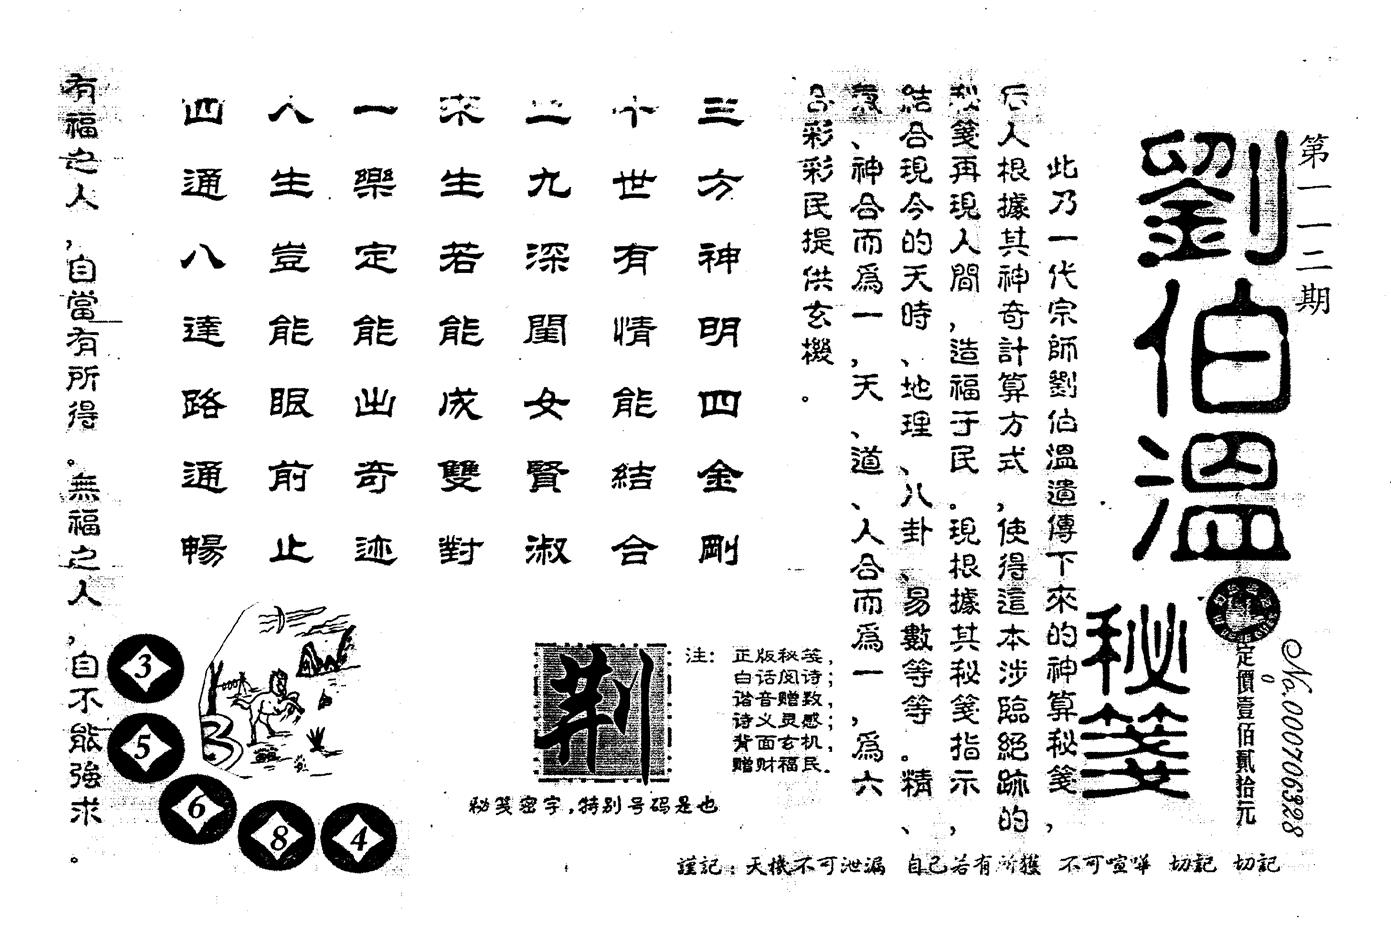 第一一二期
劉伯溫
秘箋
定價壹佰貳拾元
No.000706328
此乃一代宗師劉伯溫遺傳下來的神算秘箋，
后人根據其神奇計算方式，使得這本涉臨絕跡的
秘箋再現人間，造福于民。現根據其秘箋指示，
結合現今的天時、地理、八卦、易數等等。精、
氣、神合而爲一，天、道、人合而爲一，爲六
合彩彩民提供玄機。
三方神明四金剛
十世有情能結合
二九深閨女賢淑
來生若能成雙對
一樂定能出奇迹
人生豈能眼前止
四通八達路通暢
有福之人，自當有所得。無福之人，自不能強求。
注：正版秘笺，
白话阅诗；
谐音赠数，
诗义灵感；
背面玄机，
赠财福民。
荆
秘笺密字，特别号码是也
3
5
6
8
4
謹記：天機不可泄漏 自己若有所獲 不可喧嘩 切記 切記